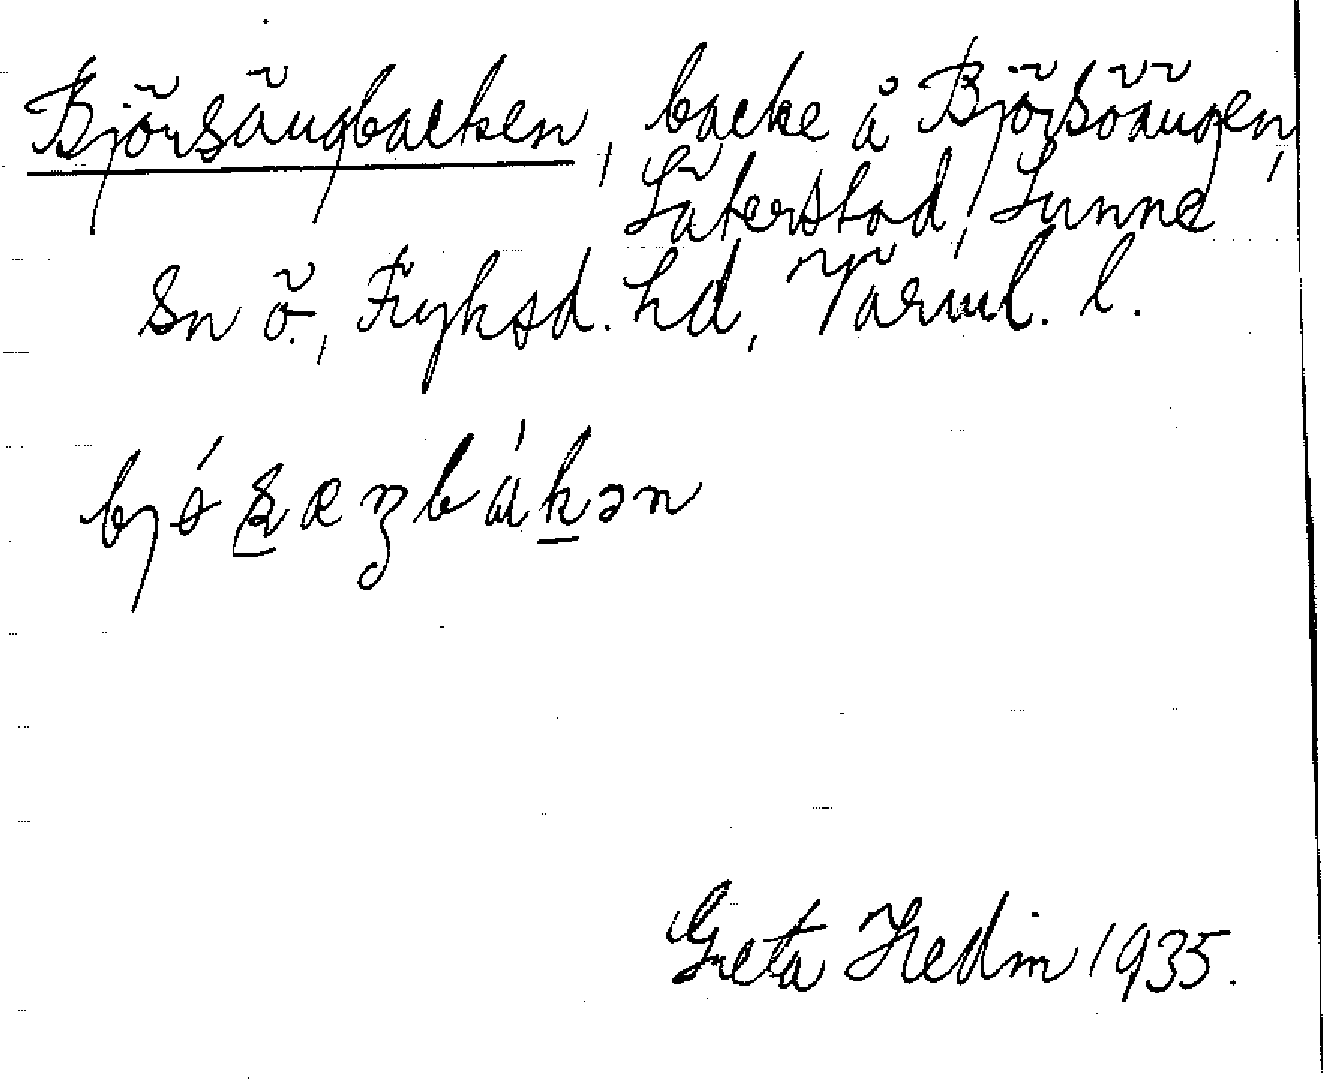 Björsängbacken, backe å Björsöängen,
Säterstad, Sunne
sn ö., Fryksd. hd, Värml. l.
bjǿsæŋbákən
Greta Hedin 1935.